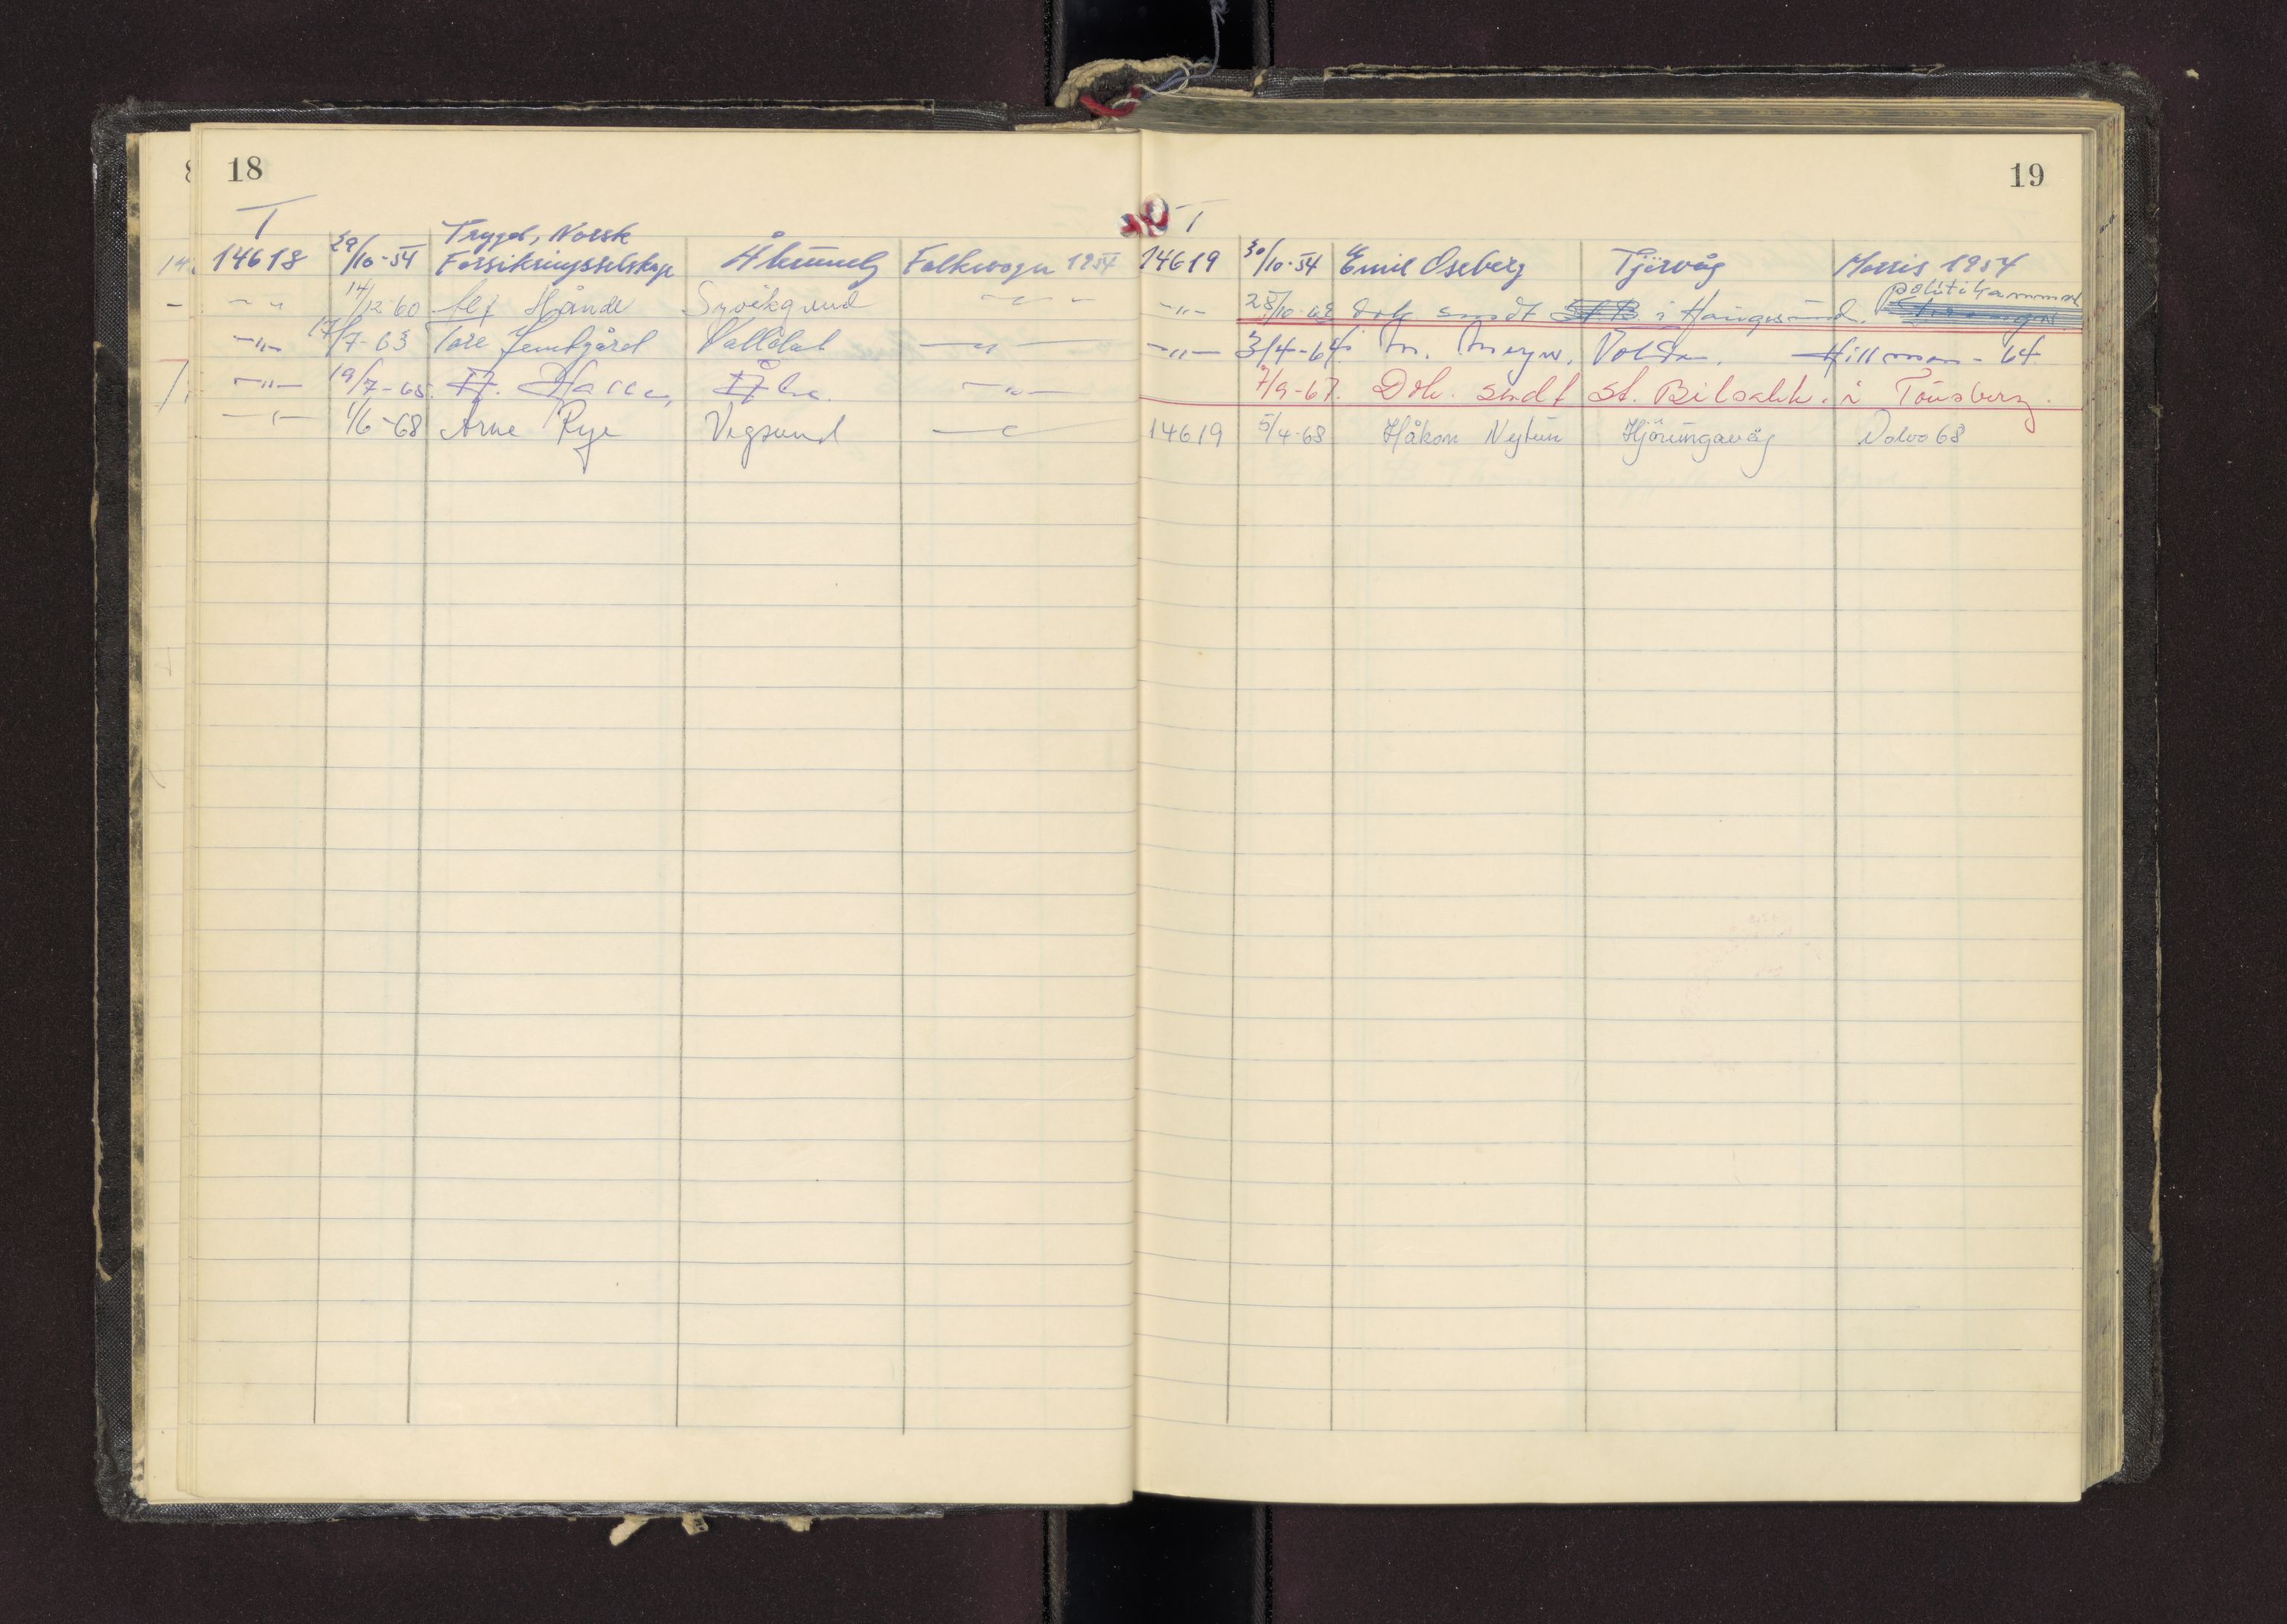 18
T
14618 29/10-54 Trygd, Norsk Forsikringsselskap Ålesund Folkevogn 1954
-"- 14/12-60 Hånde -"-
-"- 17/7-63 Tore -"-
-"- 19/7-65. -"-
-"- 1/6-68 Arne Rye Vegsund -"-
19
T
14619 30/10-54 Emil Oseberg Tjörvåg Morris 1954
-"- 28/10-63 Dok sendt St. B. i Haugesund. politikammer
-"- 3/4-64 M. Volda. Hillman - 64.
7/9-67. Dok. sendt St. Bilsakk. i Tönsberg.
14619 5/4-68 Håkon Nytun Hjörungavåg Volvo 68